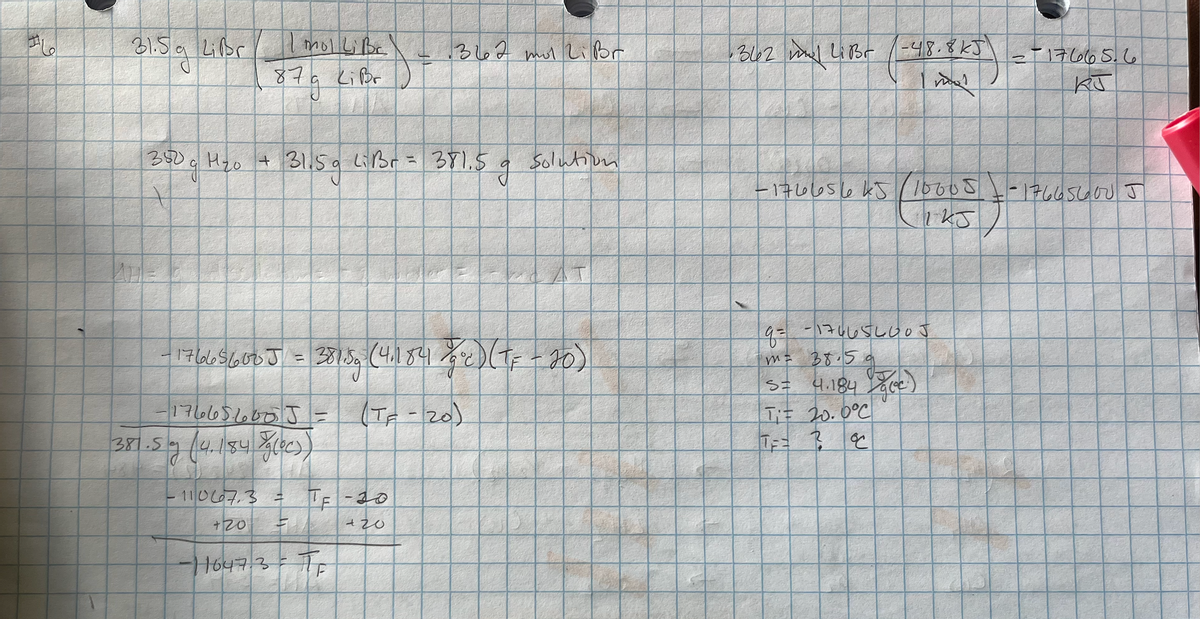 #6 31.5 g LiBr ( 1 mol LiBr / 87 g LiBr ) = .362 mol LiBr
.362 mol LiBr ( -48.8 kJ / 1 mol ) = -17665.6 kJ
350 g H2O + 31.5 g LiBr = 381.5 g solution
-176656 kJ ( 1000 J / 1 kJ ) = -17665600 J
-17665600 J = 381.5g (4.184 J/g°C) (TF - 20)
-17665600 J / 381.5 g (4.184 J/g(°C)) = (TF - 20)
-11067.3 = TF - 20
+20 = +20
-11047.3 = TF
q = -17665600 J
m = 38.5 g
s = 4.184 J/g(°C)
Ti = 20.0°C
TF = ? °C